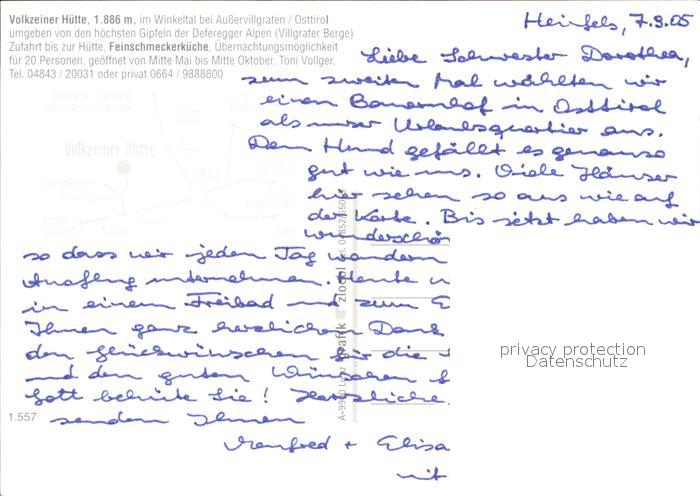 Volkzeiner Hütte, 1.886 m, im Winkeltal bei Außervillgraten / Osttirol
umgeben von den höchsten Gipfeln der Deferegger Alpen (Villgrater Berge)
Zufahrt bis zur Hütte, Feinschmeckerküche, Übernachtungsmöglichkeit
für 20 Personen, geöffnet von Mitte Mai bis Mitte Oktober, Toni Vollger,
Tel. 04843 / 20031 oder privat 0664 / 9888800
Volkzeiner Hütte
LIENZ
Heinfels, 7.9.05
Liebe Schwester Dorothea,
zum zweiten Mal wählten wir
einen Bauernhof in Osttirol
als unser Urlaubsquartier aus.
Dem Hund gefällt es genauso
gut wie uns. Viele Häuser
hier sehen so aus wie auf
der Karte. Bis jetzt haben wir
wunderschön
so dass wir jeden Tag wandern
Ausflug unternehmen. Heute w
in einem Freibad und zum E
Ihnen ganz herzlichen Dank
den Glückwünschen für die
und den guten Wünschen
Gott behüte Sie! Herzliche
senden Ihnen
Manfred + Elisa
mit
1.557
grafik zloebl
privacy protection
Datenschutz